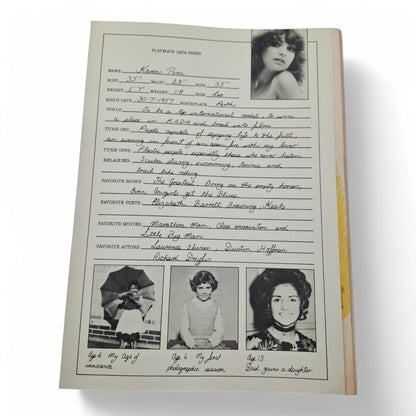 PLAYMATE DATA SHEET
NAME Karen Pini
BUST 35" WAIST 23" HIPS 35"
HEIGHT 5'7" WEIGHT 118 SIGN Leo
BIRTH DATE 30-7-1957 BIRTHPLACE Perth
GOALS To be a top international model, to win
a place in R.A.D.A and break into films.
TURN-ONS People capable of enjoying life to the full,
an evening in front of an open fire with my lover.
TURN-OFFS Plastic people - especially those who never listen
RELAXING Scuba diving, swimming, tennis and
trail bike riding
FAVORITE BOOKS The Greatest, Bring on the empty horses,
Even Cowgirls get the Blues
FAVORITE POETS Elizabeth Barrett Browning, Keats
FAVORITE MOVIES Marathon Man, Close encounters and
Little Big Man
FAVORITE ACTORS Laurence Olivier, Dustin Hoffman
Richard Dreyfus
Age 4 My Age of
innocence
Age 6 My first
photographic session
Age 13
Dad gains a daughter